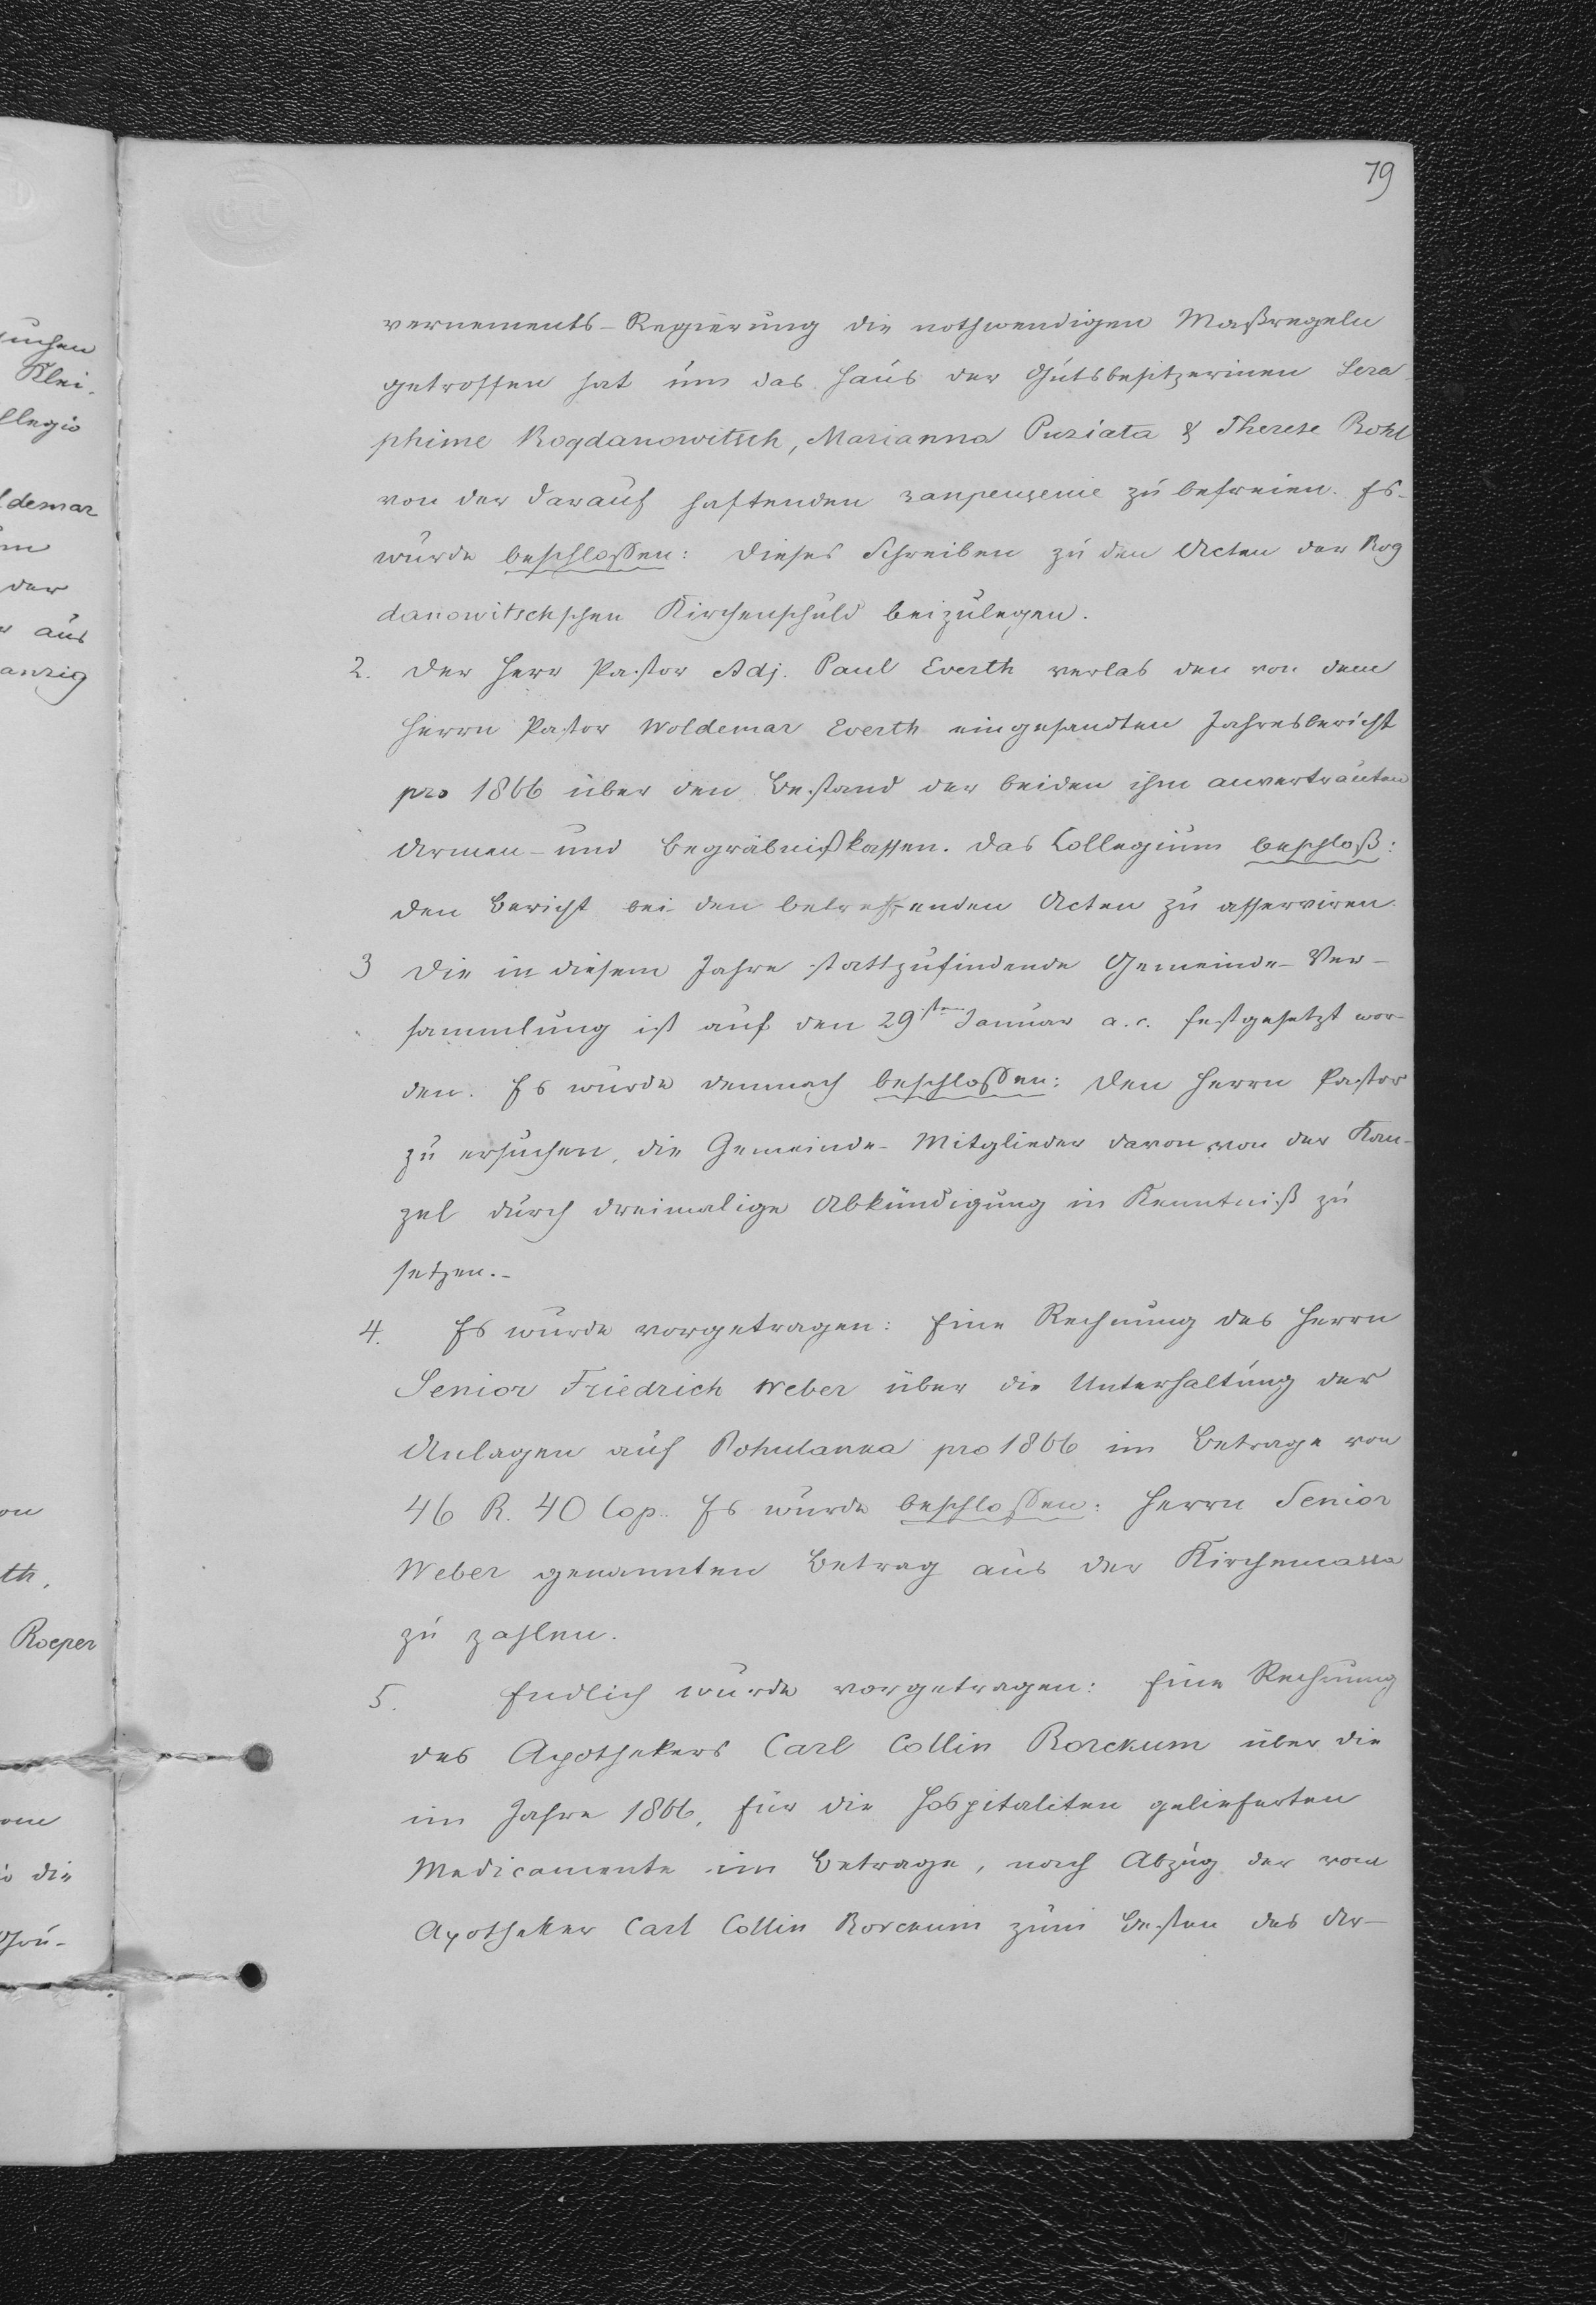 79
vernements-Regierung die nothwendigen Maßregeln
getroffen hat um das Haus der Gutsbesitzerinnen Sera-
phime Bogdanowitsch, Marianna Puziata & Therese Bohl
von der darauf haftenden запрещение zu befreien. Es
wurde beschlossen: dieses Schreiben zu den Acten der Bog
danowitschschen Kirchenschuld beizulegen.
2. Der Herr Pastor Adj. Paul Everth verlas den von dem
Herrn Pastor Woldemar Everth eingesandten Jahresbericht
pro 1866 über den Bestand der beiden ihm anvertrauten
Armen- und Begräbnißkassen. Das Collegium beschloß:
den Bericht bei den betreffenden Acten zu asserviren.
3 Die in diesem Jahre stattzufindende Gemeinde-Ver-
sammlung ist auf den 29sten Januar a.c. festgesetzt wor-
den. Es wurde demnach beschlossen: den Herrn Pastor
zu ersuchen, die Gemeinde-Mitglieder davon von der Kan-
zel durch dreimalige Abkündigung in Kenntniß zu
setzen.-
4. Es wurde vorgetragen: Eine Rechnung des Herrn
Senior Friedrich Weber über die Unterhaltung der
Anlagen auf Pohulanka pro 1866 im Betrage von
46 R. 40 Cop. Es wurde beschlossen: Herrn Senior
Weber genannten Betrag aus der Kirchencassa
zu zahlen.
5. Endlich wurde vorgetragen: Eine Rechnung
des Apothekers Carl Collin Borckum über die
im Jahre 1866, für die Hospitaliten gelieferten
Medicamente im Betrage, nach Abzug der vom
Apotheker Carl Collin Borckum zum Besten des Ar-